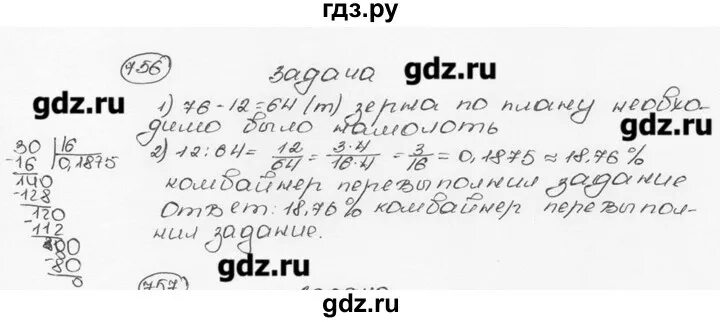 гдз.ру
756 задача gdz.ru
1) 76-12=64 (т) зерна по плану необхо-
gdz.ru
димо было намолоть
2) 12:64= 12/64 = 3·4/16·4 = 3/16 = 0,1875 ≈ 18,76 %
комбайнер перевыполнил задание
Ответ: 18,76 % комбайнер перевыпол-
нил задание.
30 16
-16 0,1875
140
-128
120
-112
80
-80
0
gdz.ru
gdz.ru
gdz.ru
757
gdz.ru